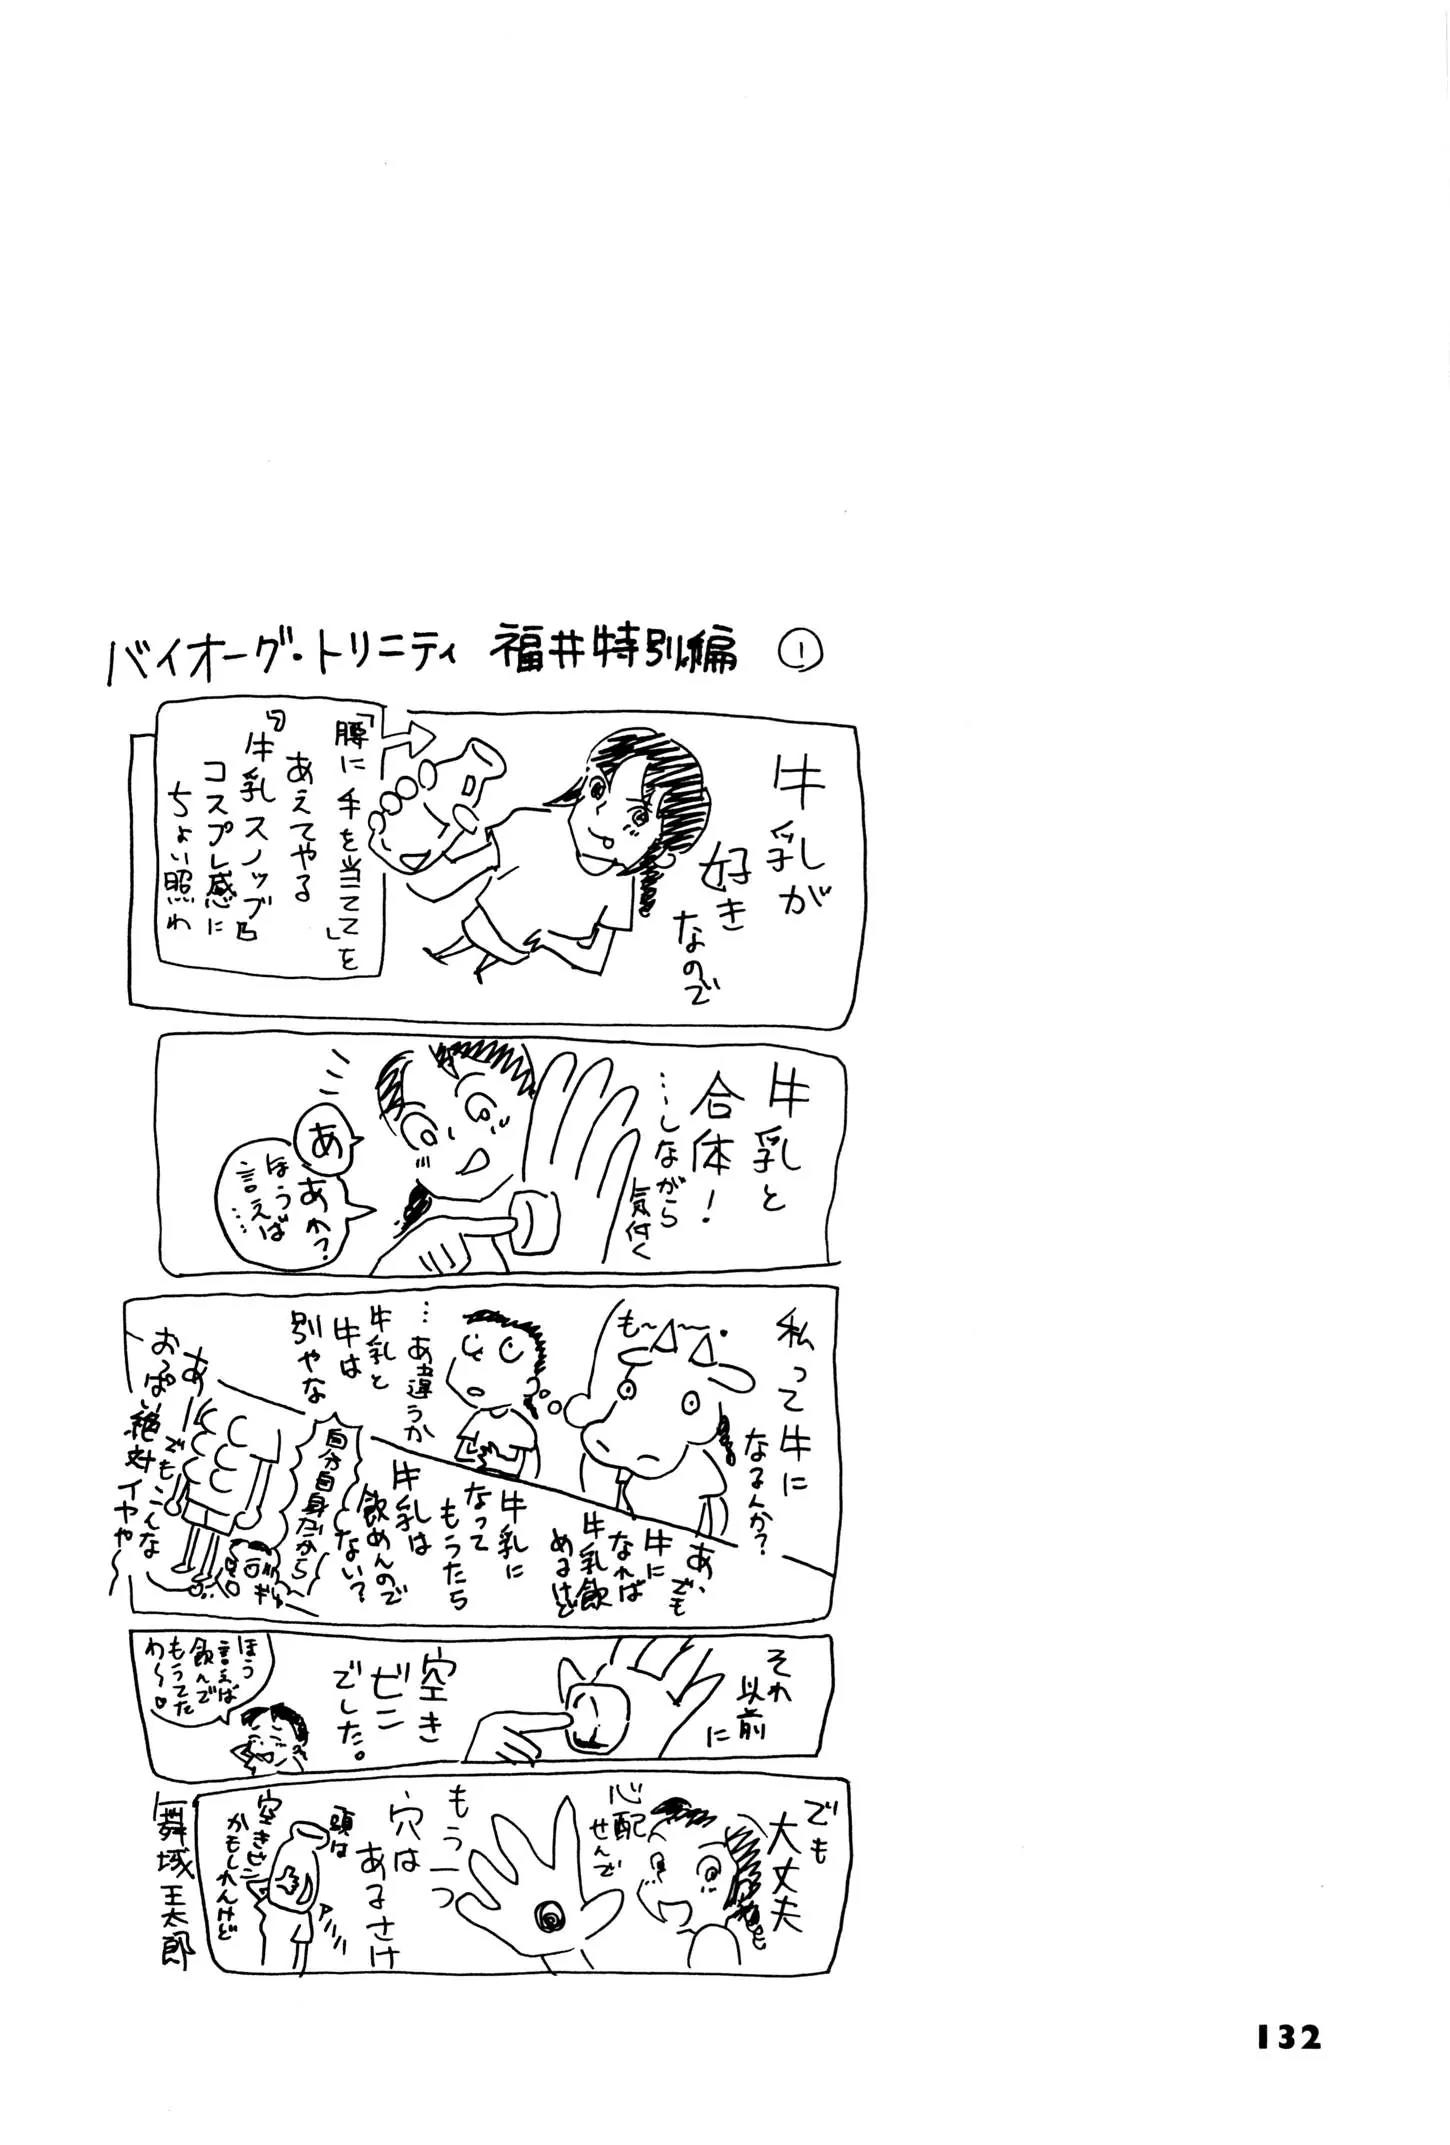 バイオーグ・トリニティ 福井特別編 ①
牛乳が
好き
なので
「腰に手を当てて」を
あえてやる
『牛乳スノッブ』
コスプレ感に
ちょい照れ
牛乳と
合体!
…しながら
気付く
あ
あれ?
ほういば
言えば
…
私って牛に
なるんか?
も~~~。
…あ違うか
牛乳と
牛は
別やな
あ、でも
牛に
なれば
牛乳飲
めるけど
牛乳に
なって
もうたら
牛乳は
飲めんので
ない?
自分自身だから
あ
でもこんな
おっぱい絶対イヤや~
それ
以前
に
空き
ビン
でした。
ほう
言えば
飲んで
もうてた
わ~♡
でも
大丈夫
心配
せんで
もう一つ
穴は
あるさけ
頭は
空きビン
かもしれんけど
舞城王太郎
132